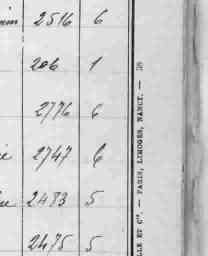 2516 6
206 1
2776 6
2747 6
2483 5
2475 5
LLE ET Cie. — PARIS, LIMOGES, NANCY. —